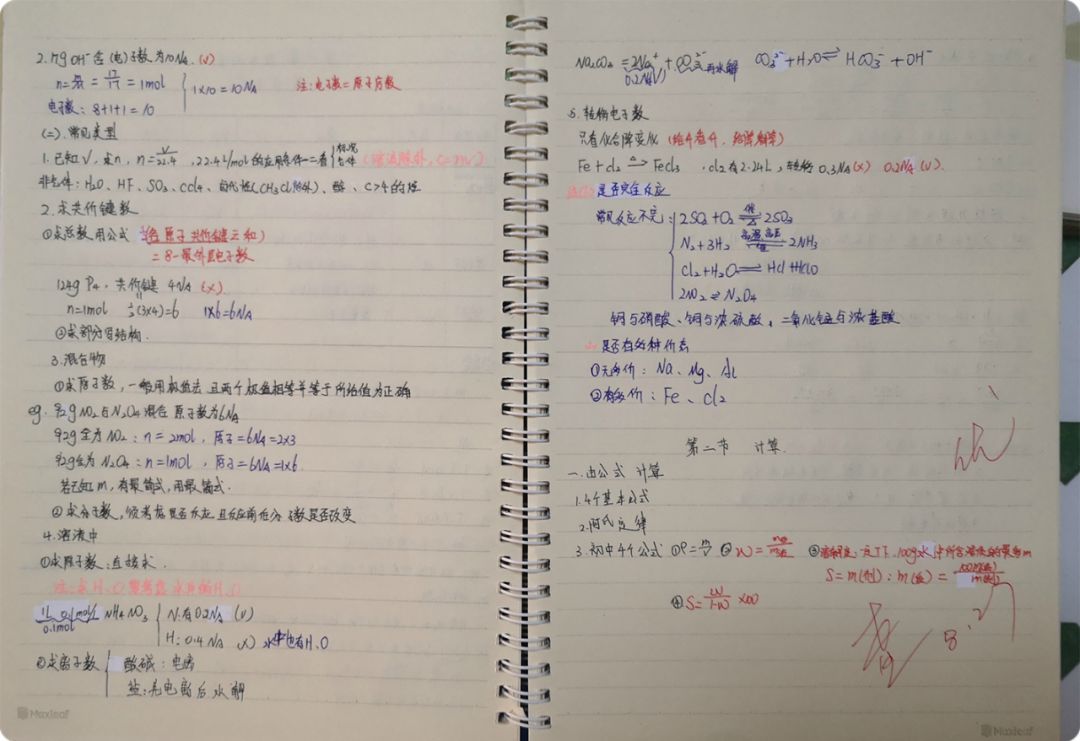 2. 17g OH⁻含(电)子数为10NA. (√)
n= m/M = 17/17 = 1mol 1×10=10NA 注:电子数=原子序数
电子数: 8+1+1=10
(二).常见类型
1.已知V,求n, n= V/22.4 ,22.4L/mol的应用条件一二看 标况 气体
非气体: H₂O、HF、SO₃、CCl₄、(CH₃Cl除外)、醇、C>4的烃
2.求共价键数
①求总数用公式 ½(各原子共价键之和)
=8-最外层电子数
124g P₄, 共价键 4NA (×)
n=1mol ½(3×4)=6 1×6=6NA
②求部分写结构.
3.混合物
①求原子数,一般用极值法 且两个极值相等并等于所给值为正确
eg. 92g NO₂与N₂O₄混合 原子数为6NA
92g全为NO₂: n=2mol, 原子=6NA=2×3
92g全为N₂O₄: n=1mol, 原子=6NA=1×6
若已知m,有最简式,用最简式.
②求分子数,须考虑是否反应 且反应前后分子数是否改变
4.溶液中
①求原子数:直接求.
注:求H、O要考虑水中的H、O
1L 0.1mol/L NH₄NO₃ N:有0.2NA (√)
0.1mol
H:0.4NA (×) 水中也有H、O
②求离子数 酸碱:电离
盐:先电离后水解
Maxleaf
Na₂CO₃=2Na⁺+CO₃²⁻再水解 CO₃²⁻+H₂O⇌HCO₃⁻+OH⁻
0.2NA(√)
5.转移电子数
只看化合价变化 (给升看升,给降看降)
Fe+Cl₂ →△ FeCl₃ .Cl₂有2.24L,转移 0.3NA(×) 0.2NA(√).
是否完全反应
常见反应不完: 2SO₂+O₂ ⇌ 2SO₃
N₂+3H₂ ⇌ 2NH₃
Cl₂+H₂O⇌HCl+HClO
2NO₂⇌N₂O₄
铜与硝酸、铜与浓硫酸、二氧化锰与浓盐酸
是否有多种价态
①无多价: Na、Mg、Al
②有多价: Fe、Cl₂
第二节 计算.
一.由公式计算
1.4个基本公式
2.阿氏定律
3.初中4个公式 ①ρ=m/V ②W=m质/m液 ③溶解度:一定T下.100g水中所含溶质的最多m
S=m(剂):m(盐)=
④S=W/1-W ×100
8.27
Maxleaf